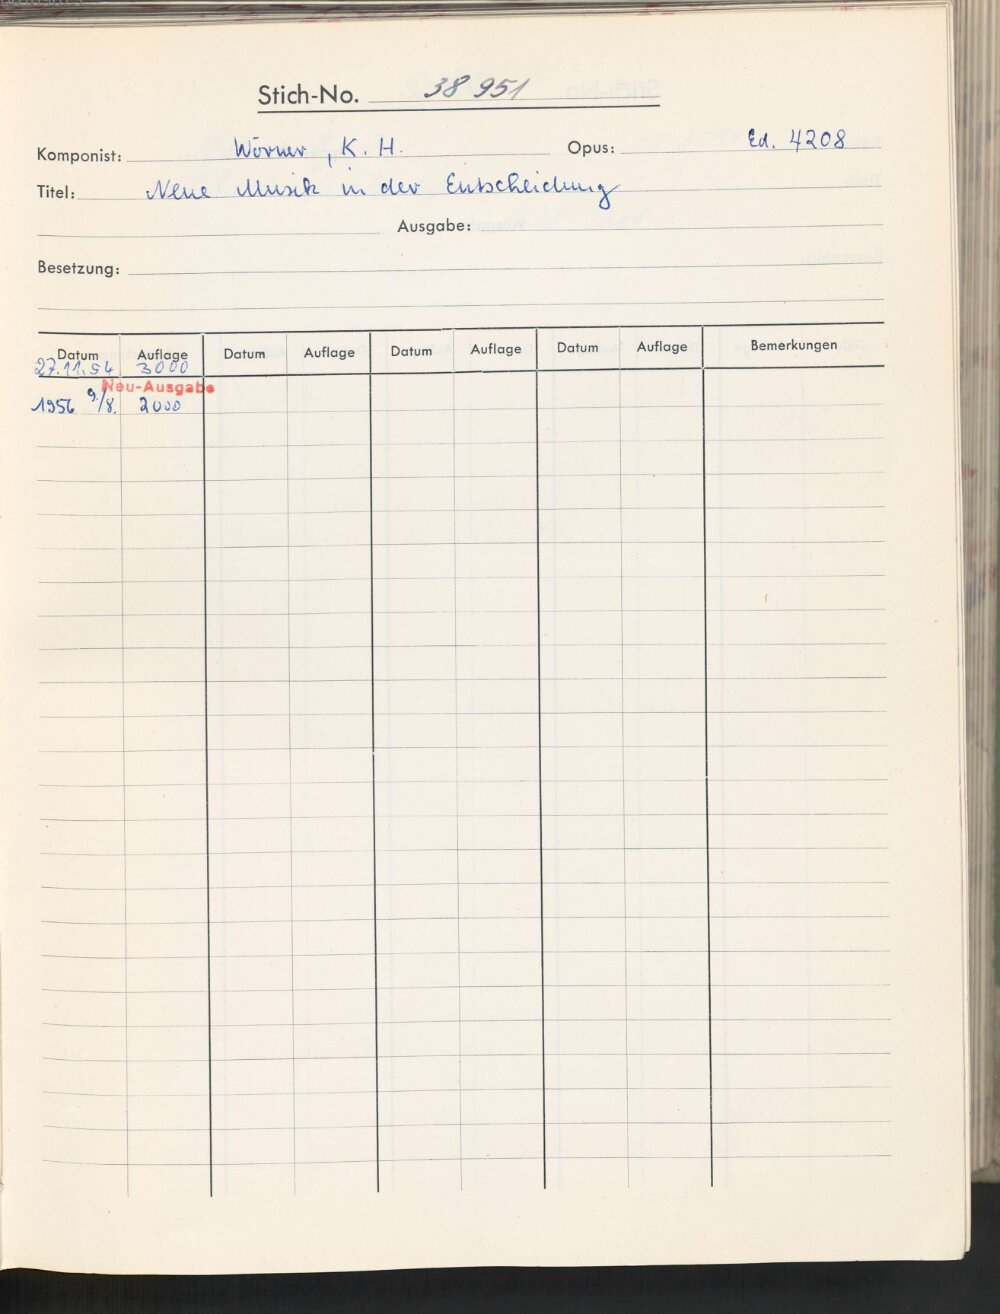 Stich-No. 38 951
Komponist: Wörner, K. H. Opus: Ed. 4208
Titel: Neue Musik in der Entscheidung
Ausgabe:
Besetzung:
Datum Auflage Datum Auflage Datum Auflage Datum Auflage Bemerkungen
27.11.54 3000
Neu-Ausgabe
1956 9/8. 2000